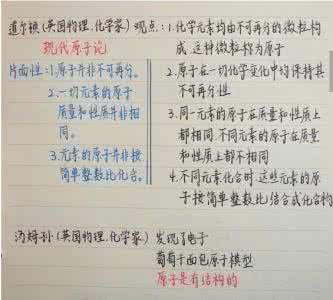 道尔顿(英国物理、化学家)观点:1.化学元素均由不可再分的微粒构
成,这种微粒称为原子
现代原子论
片面性:1.原子并非不可再分。
2.一切元素的原子
质量和性质并非相
同。
3.元素的原子并非按
简单整数比化合。
2.原子在一切化学变化中均保持其
不可再分性
3.同一元素的原子在质量和性质上
都相同,不同元素的原子在质量
和性质上都不相同
4.不同元素化合时,这些元素的原
子按简单整数比结合成化合物
汤姆孙(英国物理、化学家) 发现了电子
葡萄干面包原子模型
原子是有结构的